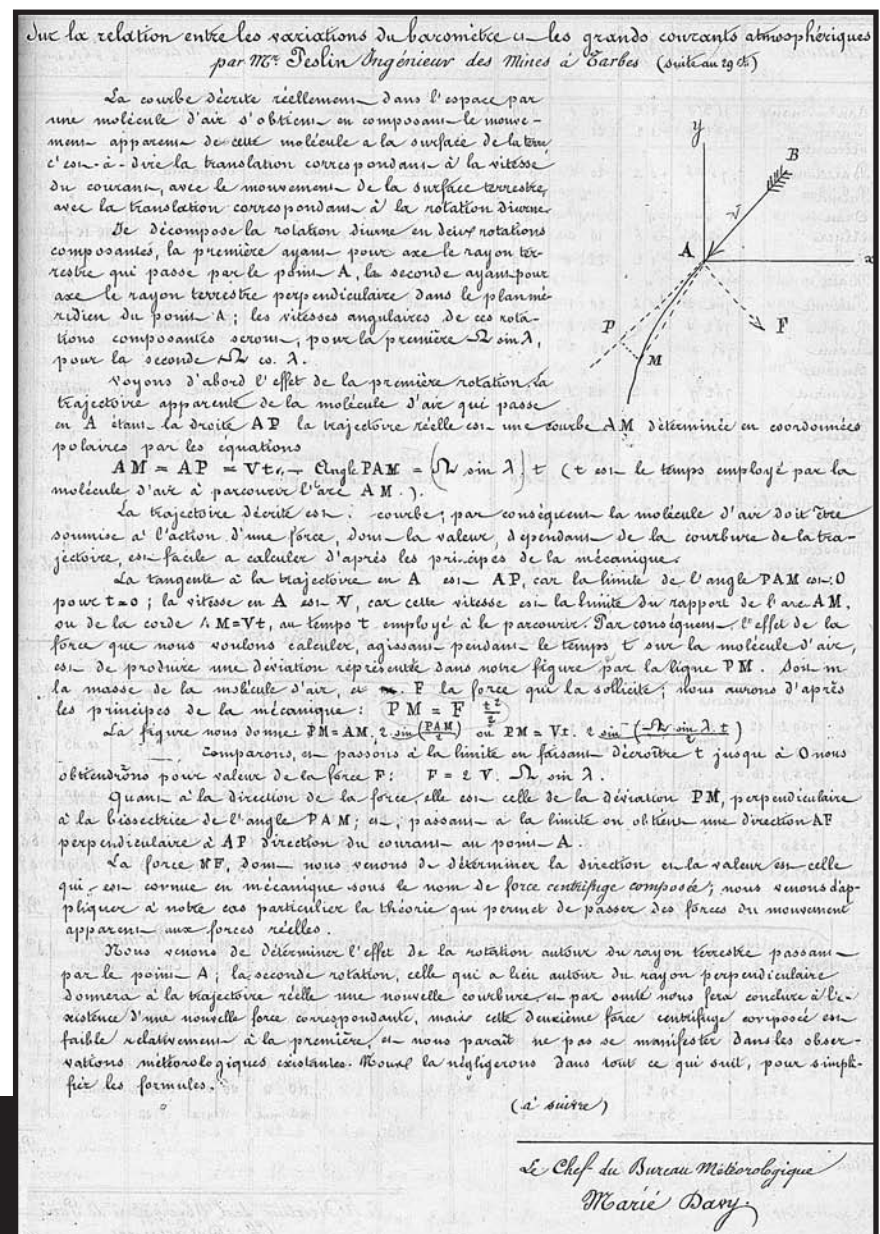 Sur la relation entre les variations du baromètre et les grands courants atmosphériques
par Mr. Peslin Ingénieur des Mines à Tarbes (suite au 29 )
La courbe décrite réellement dans l'espace par
une molécule d'air s'obtient en composant le mouve-
ment apparent de cette molécule a la surface de la terre,
c'est-à-dire la translation correspondant à la vitesse
du courant, avec le mouvement de la surface terrestre,
avec la translation correspondant à la rotation diurne.
Je décompose la rotation diurne en deux rotations
composantes, la première ayant pour axe le rayon ter-
restre qui passe par le point A, la seconde ayant pour
axe le rayon terrestre perpendiculaire dans le plan mé-
ridien du point A; les vitesses angulaires de ces rota-
tions composantes seront, pour la première Ω sin λ,
pour la seconde Ω cos. λ.
y
B
V
A
x
F
P
M
Voyons d'abord l'effet de la première rotation. La
trajectoire apparente de la molécule d'air qui passe
en A étant la droite AP la trajectoire réelle est une courbe AM déterminée en coordonnées
polaires par les équations
AM = AP = Vt, Angle PAM = (Ω sin λ) t (t est le temps employé par la
molécule d'air à parcourir l'arc AM.).
La trajectoire décrite est courbe; par conséquent la molécule d'air doit être
soumise à l'action d'une force, dont la valeur, dépendant de la courbure de la tra-
jectoire, est facile a calculer d'après les principes de la mécanique.
La tangente à la trajectoire en A est AP, car la limite de l'angle PAM est 0
pour t=0; la vitesse en A est V, car cette vitesse est la limite du rapport de l'arc AM,
ou de la corde AM=Vt, au temps t employé à le parcourir. Par conséquent, l'effet de la
force que nous voulons calculer, agissant pendant le temps t sur la molécule d'air,
est de produire une déviation représentée dans notre figure par la ligne PM. Soit m
la masse de la molécule d'air, et F la force qui la sollicite; nous aurons d'après
les principes de la mécanique: PM = F t²/2
La figure nous donne PM = AM. 2 sin (PAM/2) ou PM = Vt. 2 sin (Ω sin λ. t/2)
Comparons, et passons à la limite en faisant décroître t jusqu à 0 nous
obtiendrons pour valeur de la force F: F = 2 V. Ω sin λ.
Quant à la direction de la force, elle est celle de la déviation PM, perpendiculaire
à la bissectrice de l'angle PAM; et, passant à la limite on obtient une direction AF
perpendiculaire à AP direction du courant au point A.
La force MF, dont nous venons de déterminer la direction et la valeur est celle
qui est connue en mécanique sous le nom de force centrifuge composée; nous venons d'ap-
pliquer à notre cas particulier la théorie qui permet de passer des forces du mouvement
apparent aux forces réelles.
Nous venons de déterminer l'effet de la rotation autour du rayon terrestre passant
par le point A; la seconde rotation, celle qui a lieu autour du rayon perpendiculaire
donnera à la trajectoire réelle une nouvelle courbure, et par suite nous fera conclure à l'e-
xistence d'une nouvelle force correspondante, mais cette deuxième force centrifuge composée est
faible relativement à la première, et nous parait ne pas se manifester dans les obser-
vations météorologiques existantes. Nous la négligerons dans tout ce qui suit, pour simpli-
fier les formules.
(à suivre)
Le Chef du Bureau Météorologique
Marié Davy.